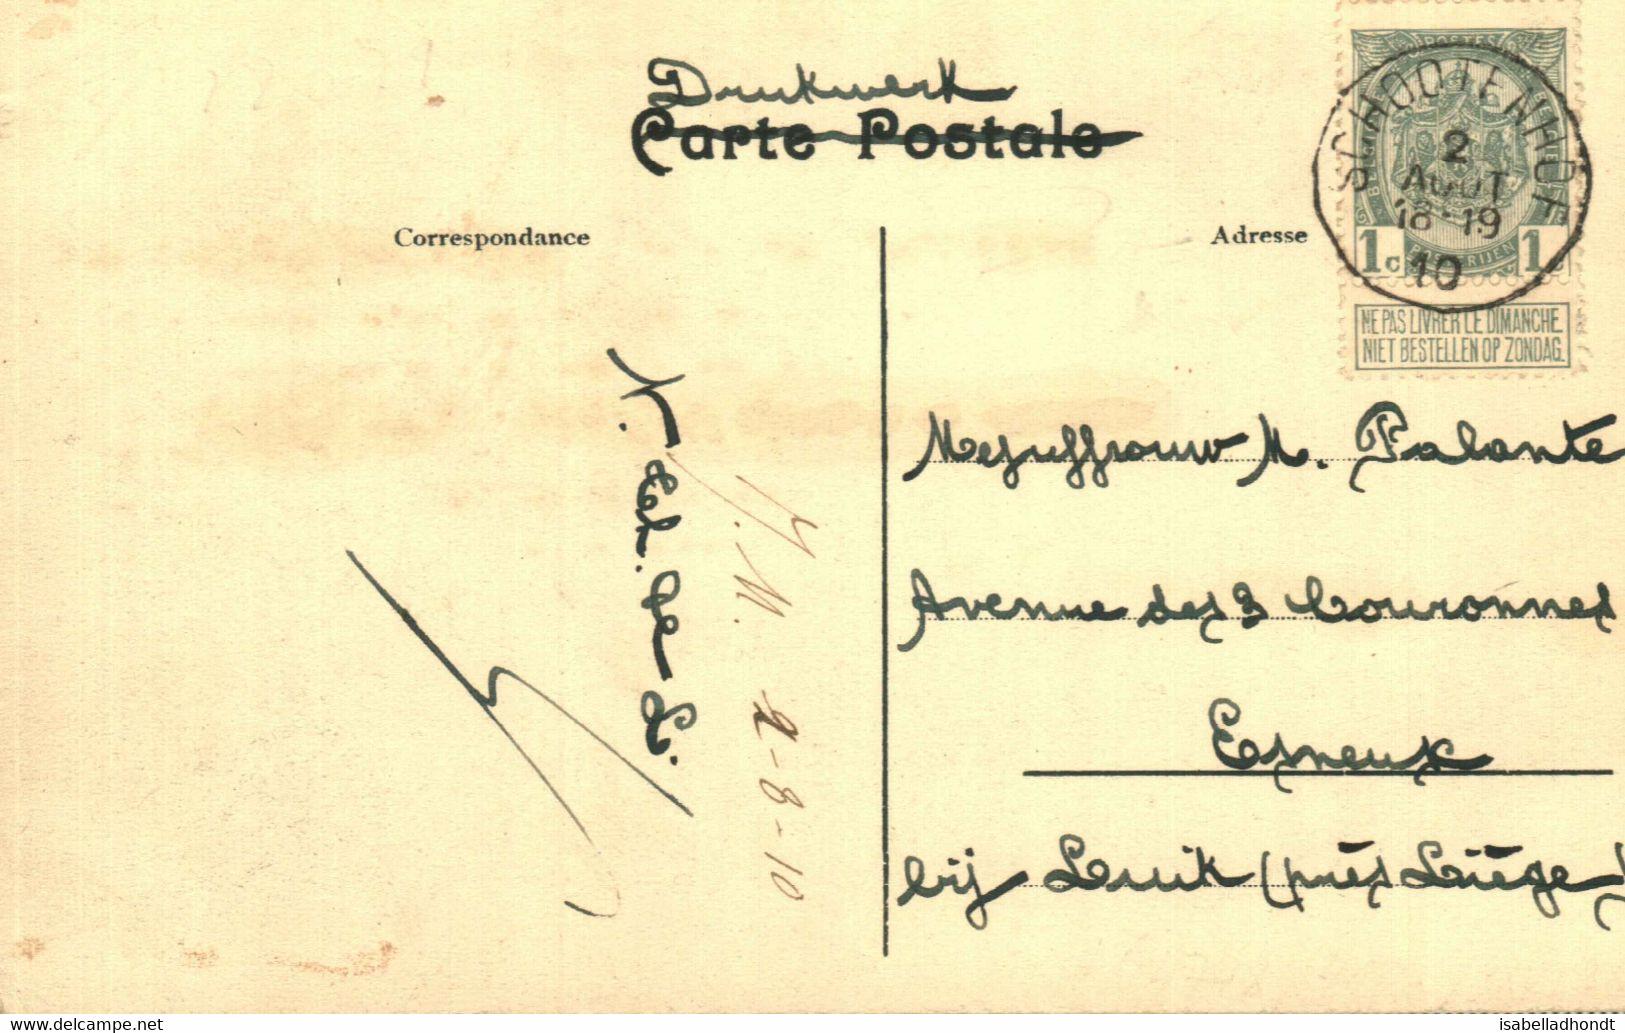 Drukwerk
Carte Postale
Correspondance
Adresse
POSTES
SCHOOTENHOF
2
AOUT
18-19
10
1c 1c
POSTERIJEN
NE PAS LIVRER LE DIMANCHE.
NIET BESTELLEN OP ZONDAG.
Mejuffrouw M. Palante
Avenue des 3 Couronnes
Esneux
bij Luik (près Liège)
2-8-10
www.delcampe.net
isabelladhondt